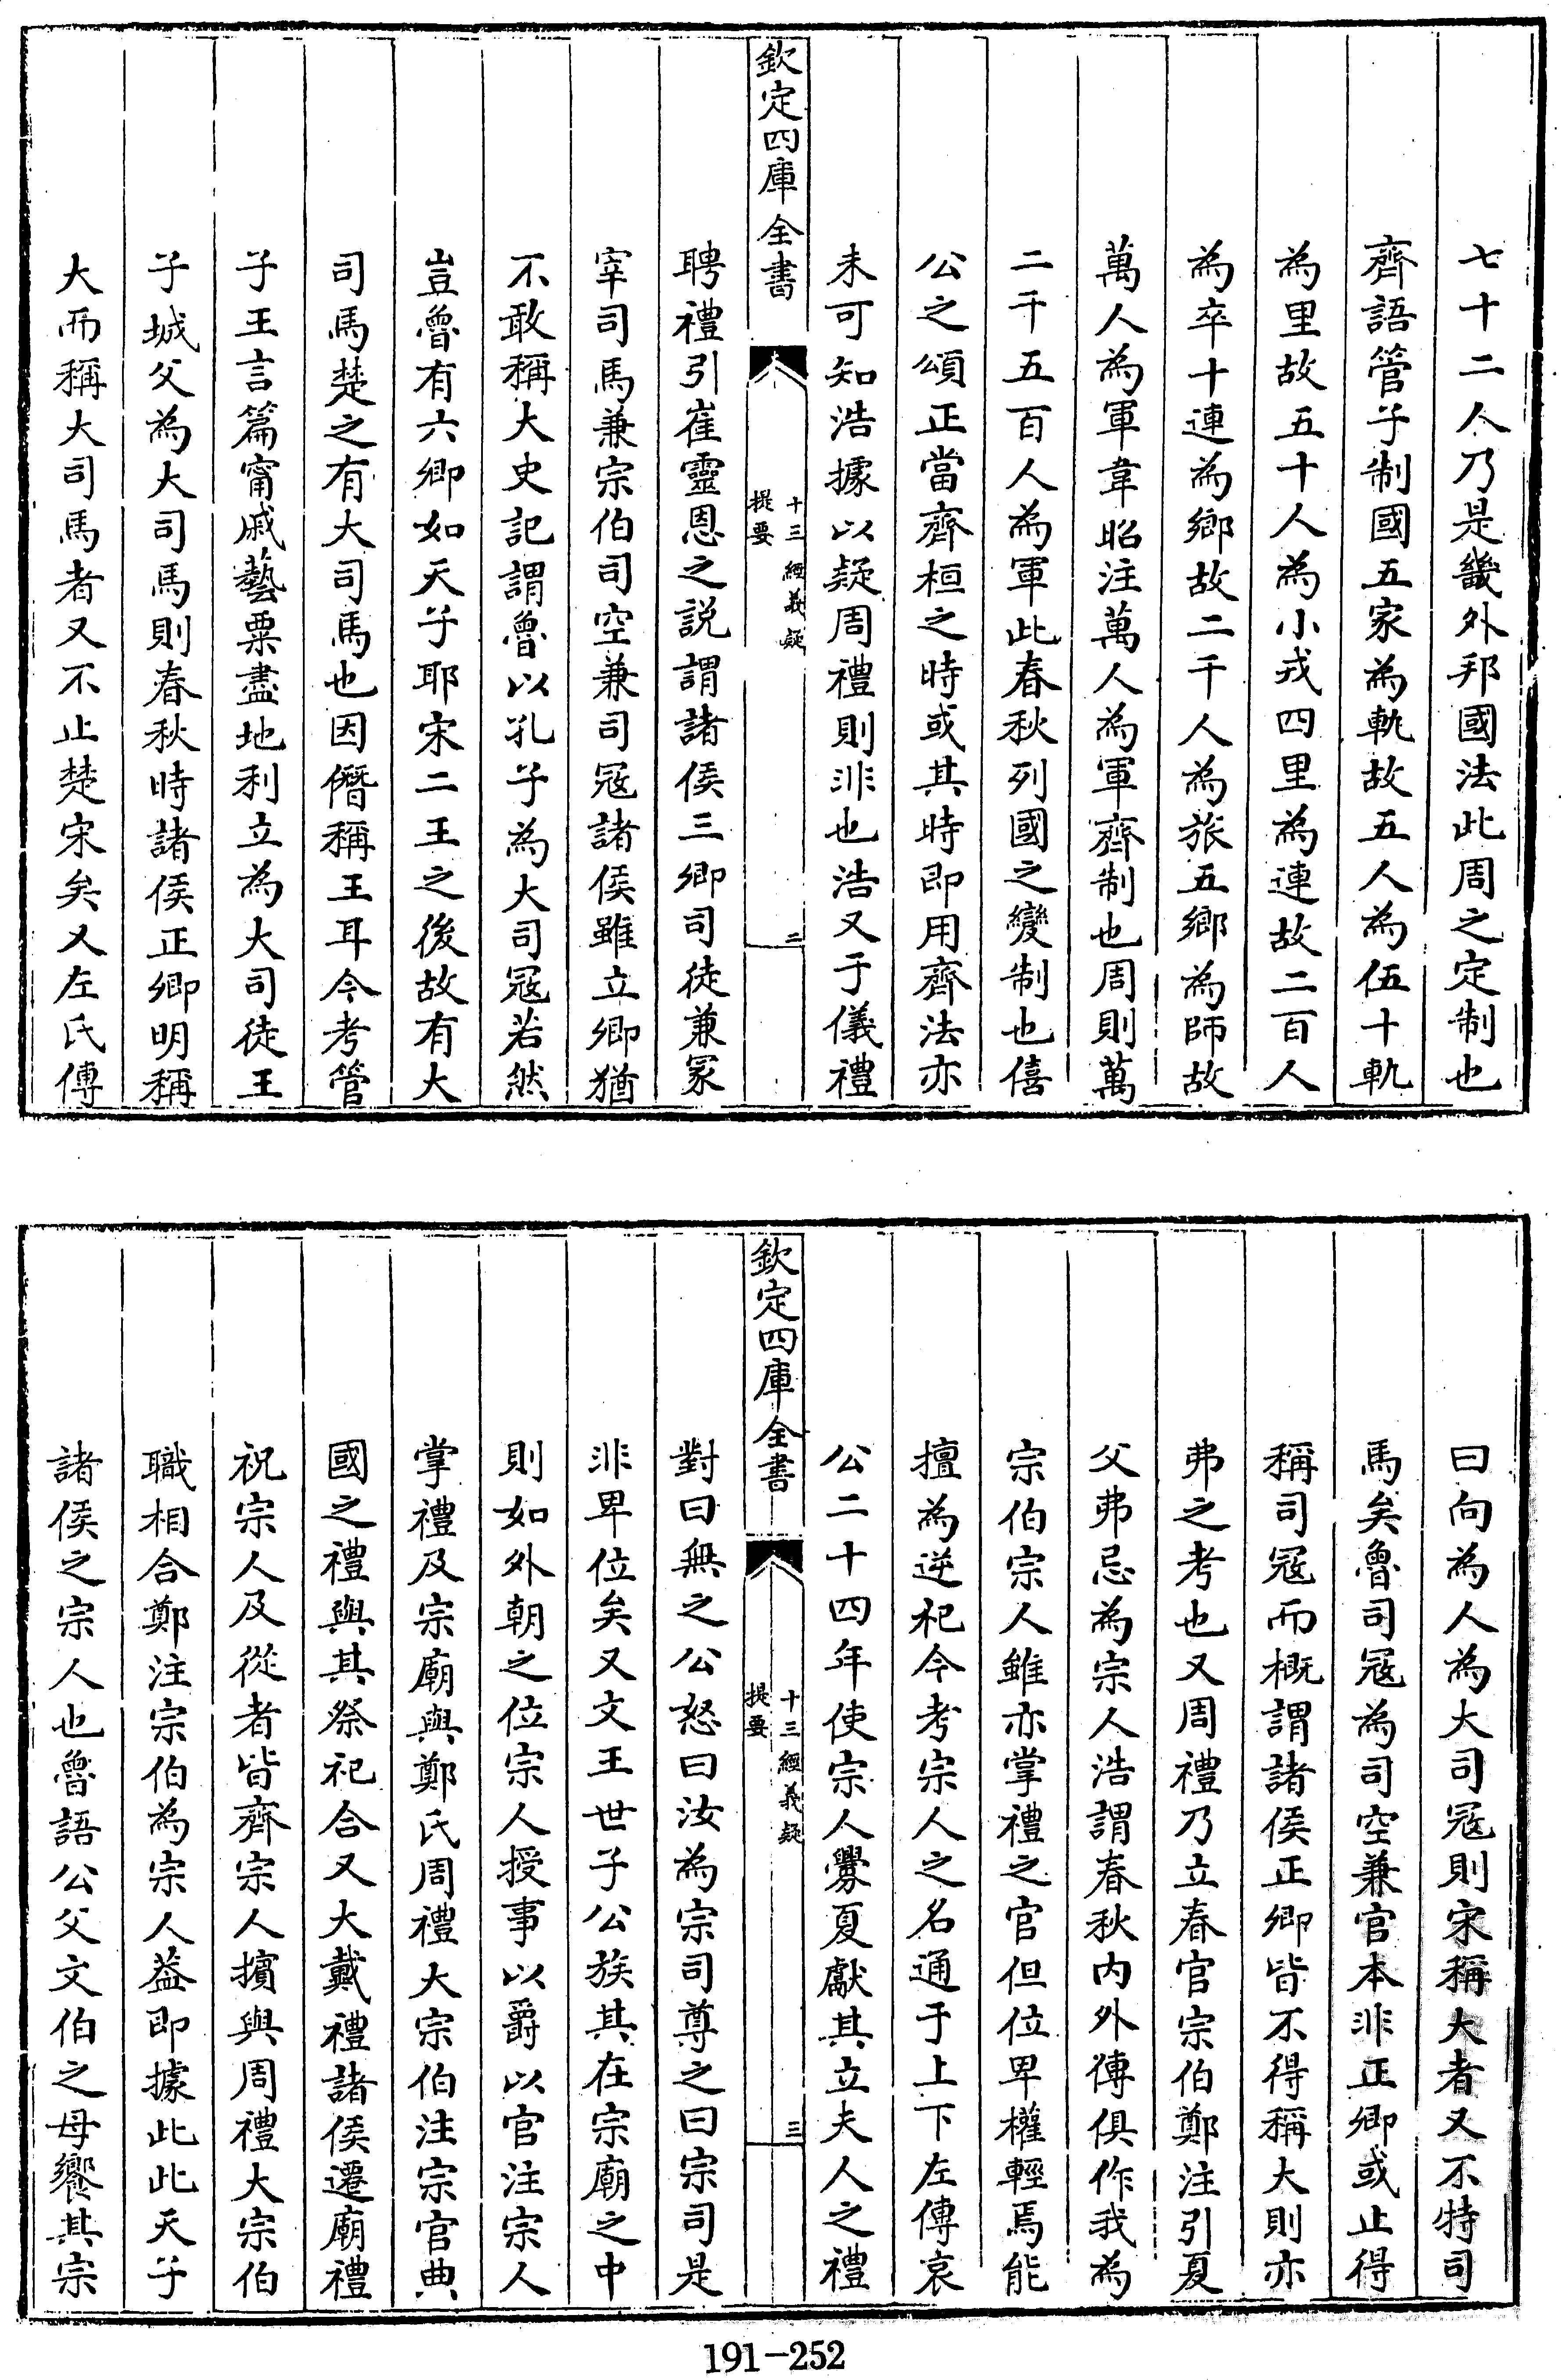 七十二人乃是畿外邦國法此周之定制也
齊語管子制國五家為軌故五人為伍十軌
為里故五十人為小戎四里為連故二百人
為卒十連為鄉故二千人為旅五鄉為師故
萬人為軍韋昭注萬人為軍齊制也周則萬
二千五百人為軍此春秋列國之變制也僖
公之頌正當齊桓之時或其時即用齊法亦
未可知浩據以疑周禮則非也浩又于儀禮
欽定四庫全書
十三經義疑
提要
二
聘禮引崔靈恩之説謂諸侯三卿司徒兼冢
宰司馬兼宗伯司空兼司冦諸侯雖立卿猶
不敢稱大史記謂魯以孔子為大司冦若然
豈魯有六卿如天子耶宋二王之後故有大
司馬楚之有大司馬也因僭稱王耳今考管
子王言篇甯戚藝粟盡地利立為大司徒王
子城父為大司馬則春秋時諸侯正卿明稱
大而稱大司馬者又不止楚宋矣又左氏傳
曰向為人為大司冦則宋稱大者又不特司
馬矣魯司冦為司空兼官本非正卿或止得
稱司冦而概謂諸侯正卿皆不得稱大則亦
弗之考也又周禮乃立春官宗伯鄭注引夏
父弗忌為宗人浩謂春秋內外傳俱作我為
宗伯宗人雖亦掌禮之官但位卑權輕焉能
擅為逆祀今考宗人之名通于上下左傳哀
公二十四年使宗人釁夏獻其立夫人之禮
欽定四庫全書
十三經義疑
提要
三
對曰無之公怒曰汝為宗司尊之曰宗司是
非卑位矣又文王世子公族其在宗廟之中
則如外朝之位宗人授事以爵以官注宗人
掌禮及宗廟與鄭氏周禮大宗伯注宗官典
國之禮與其祭祀合又大戴禮諸侯遷廟禮
祝宗人及從者皆齊宗人擯與周禮大宗伯
職相合鄭注宗伯為宗人葢即據此此天子
諸侯之宗人也魯語公父文伯之母饗其宗
191-252